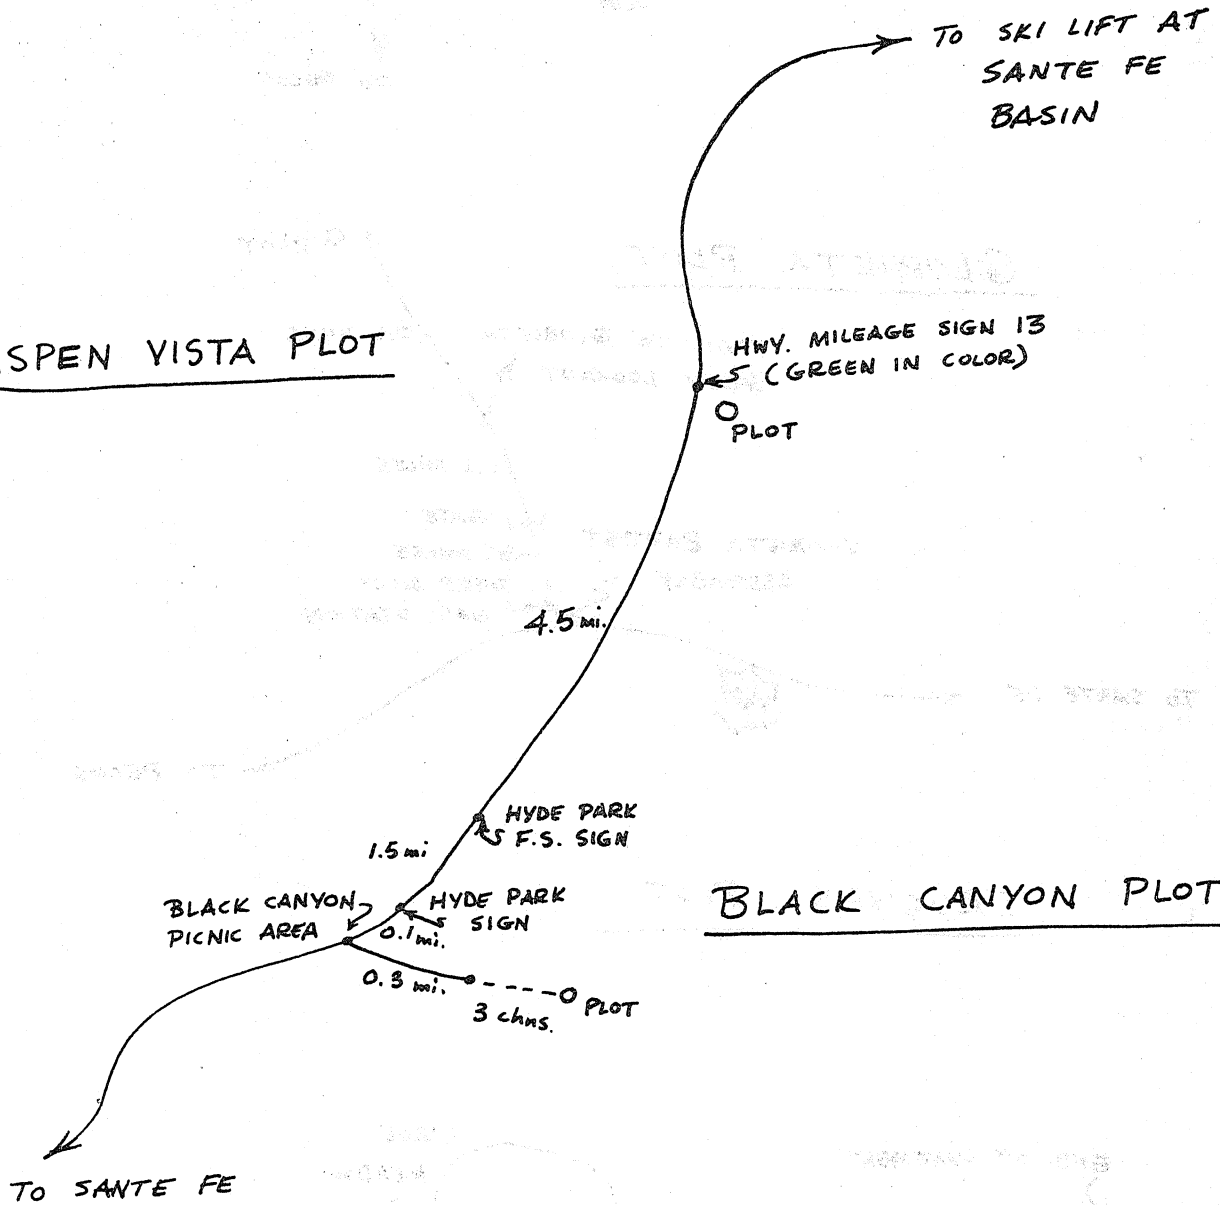 TO SKI LIFT AT
SANTE FE
BASIN
SPEN VISTA PLOT
HWY. MILEAGE SIGN 13
(GREEN IN COLOR)
PLOT
4.5 mi.
HYDE PARK
F.S. SIGN
1.5 mi
BLACK CANYON
PICNIC AREA
HYDE PARK
SIGN
0.1 mi.
BLACK CANYON PLOT
0.3 mi.
3 chns.
PLOT
TO SANTE FE